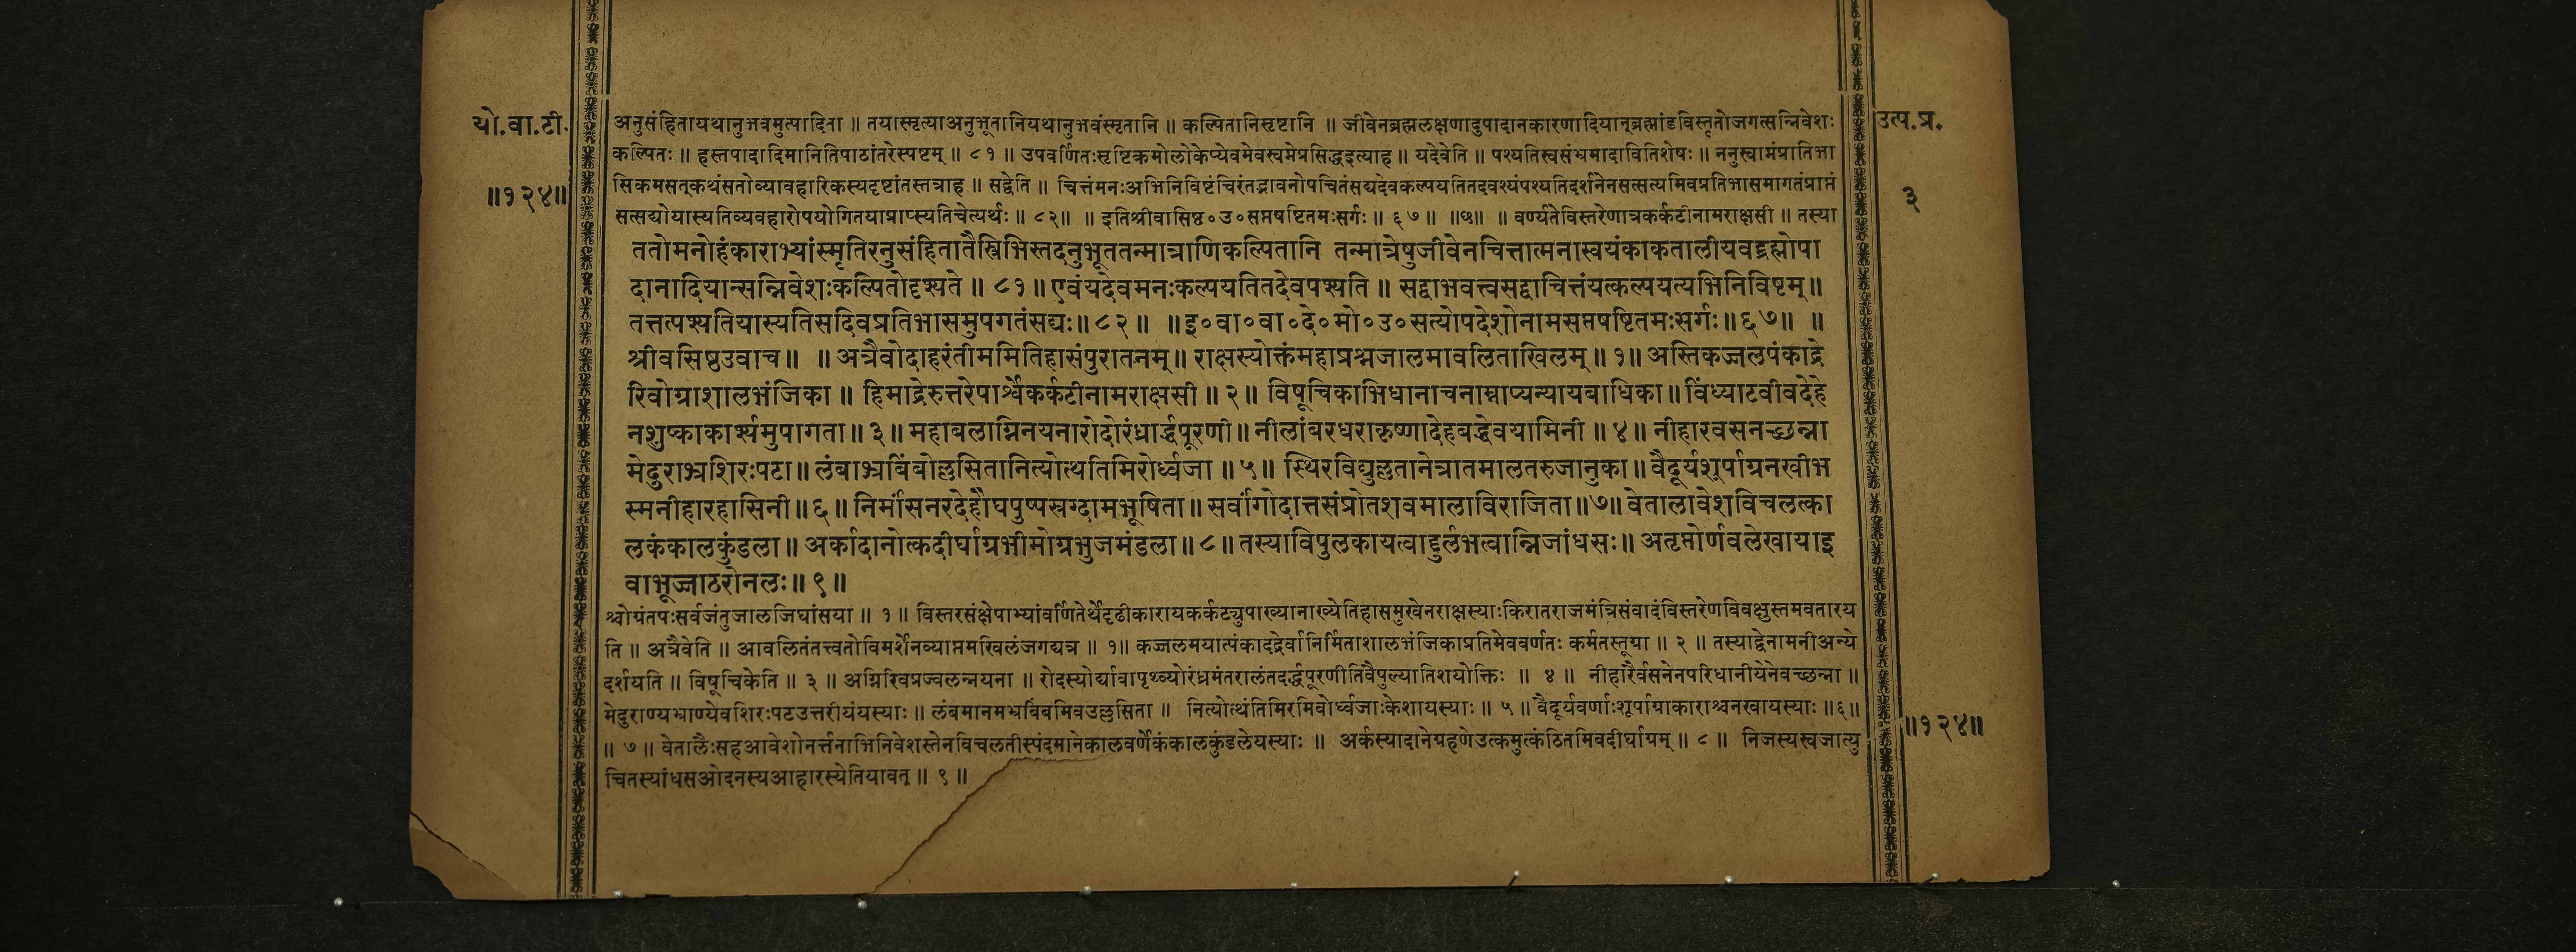 यो.वा.टी.
॥१२४॥
उत्प.प्र.
३
अनुसंहितायथानुभवमुत्पादिता ॥ तयास्मृत्याअनुभूतानियथानुभवंस्मृतानि ॥ कल्पितानिसृष्टानि ॥ जीवेनब्रह्मलक्षणादुपादानकारणादियान्ब्रह्मांडविस्तृतोजगत्सन्निवेशः
कल्पितः ॥ हस्तपादादिमानितिपाठांतरेस्पष्टम् ॥ ८१ ॥ उपवर्णितःसृष्टिक्रमोलोकेप्येवमेवस्वप्नेप्रसिद्धइत्याह ॥ यदेवेति ॥ पश्यतिस्वसंभ्रमादावितिशेषः ॥ ननुस्वाप्नंप्रातिभा
सिकमसत्कथंसतोव्यावहारिकस्यदृष्टांतस्तत्राह ॥ सद्वेति ॥ चित्तंमनःअभिनिविष्टंचिरंतद्भावनोपचितंसद्यदेवकल्पयतितदवश्यंपश्यतिदर्शनेनसत्सत्यमिवप्रतिभासमागतंप्राप्तं
सत्सद्योयास्यतिव्यवहारोपयोगितयाप्राप्स्यतिचेत्यर्थः ॥ ८२॥ ॥ इतिश्रीवासिष्ठ०उ०सप्तषष्टितमःसर्गः ॥ ६७॥ ॥ ॥ वर्ण्यतेविस्तरेणात्रकर्कटीनामराक्षसी ॥ तस्या
ततोमनोहंकाराभ्यांस्मृतिरनुसंहितातैस्त्रिभिस्तदनुभूततन्मात्राणिकल्पितानि तन्मात्रेषुजीवेनचित्तात्मनास्वयंकाकतालीयवद्ब्रह्मोपा
दानादियान्सन्निवेशःकल्पितोदृश्यते ॥ ८१॥ एवंयदेवमनःकल्पयतितदेवपश्यति ॥ सद्वाभवत्वसद्वाचित्तंयत्कल्पयत्यभिनिविष्टम्॥
तत्तत्पश्यतियास्यतिसदिवप्रतिभासमुपगतंसद्यः॥ ८२॥ ॥इ०वा०वा०दे०मो०उ०सत्योपदेशोनामसप्तषष्टितमःसर्गः॥६७॥ ॥
श्रीवसिष्ठउवाच॥ ॥ अत्रैवोदाहरंतीममितिहासंपुरातनम्॥ राक्षस्योक्तंमहाप्रश्नजालमावलिताखिलम् ॥ १॥ अस्तिकज्जलपंकाद्रे
रिवोग्राशालभंजिका ॥ हिमाद्रेरुत्तरेपार्श्वेकर्कटीनामराक्षसी ॥ २॥ विषूचिकाभिधानाचनाम्नाप्यन्यायबाधिका॥ विंध्याटवीवदेहे
नशुष्काकार्श्यमुपागता॥ ३॥ महाबलाग्निनयनारोदोरंध्रार्द्धपूरणी॥ नीलांबरधराकृष्णादेहबद्धेवयामिनी ॥ ४॥ नीहारवसनच्छन्ना
मेदुराभ्रशिरःपटा॥ लंबाभ्रबिंबोल्लसितानित्योत्थतिमिरोर्ध्वजा ॥ ५॥ स्थिरविद्युल्लतानेत्रातमालतरुजानुका॥ वैदूर्यशूर्पाग्रनखीभ
स्मनीहारहासिनी॥ ६॥ निर्मांसनरदेहौघपुष्पस्रग्दामभूषिता॥ सर्वांगोदात्तसंप्रोतशवमालाविराजिता॥७॥ वेतालावेशविचलत्का
लकंकालकुंडला॥ अर्कादानोत्कदीर्घाग्रभीमोग्रभुजमंडला॥ ८॥ तस्याविपुलकायत्वाद्दुर्लभत्वान्निजांधसः॥ अतृप्तोर्णवलेखायाइ
वाभूज्जाठरोनलः॥ ९॥
श्चोग्रंतपःसर्वजंतुजालजिघांसया ॥ १॥ विस्तरसंक्षेपाभ्यांवर्णितेर्थेदृढीकारायकर्कट्युपाख्यानाख्येतिहासमुखेनराक्षस्याःकिरातराजमंत्रिसंवादंविस्तरेणविवक्षुस्तमवतारय
ति ॥ अत्रैवेति ॥ आवलितंतत्त्वतोविमर्शेनव्याप्तमखिलंजगद्यत्र ॥ १॥ कज्जलमयात्पंकादद्रेर्वानिर्मिताशालभंजिकाप्रतिमेववर्णतः कर्मतस्तूग्रा ॥ २ ॥ तस्याद्वेनामनीअन्ये
दर्शयति ॥ विषूचिकेति ॥ ३ ॥ अग्निरिवप्रज्वलन्नयना ॥ रोदस्योर्द्यावापृथ्व्योरंध्रमंतरालंतदर्द्धपूरणीतिवैपुल्यातिशयोक्तिः ॥ ४ ॥ नीहारैर्वसनेनपरिधानीयेनेवच्छन्ना ॥
मेदुराण्यभ्राण्येवशिरःपटउत्तरीयंयस्याः ॥ लंबमानमभ्रबिंबमिवउल्लसिता ॥ नित्योत्थंतिमिरमिवोर्ध्वजाःकेशायस्याः ॥ ५ ॥ वैदूर्यवर्णाःशूर्पाग्राकाराश्चनखायस्याः ॥६॥
॥ ७ ॥ वेतालैःसहआवेशोनर्त्तनाभिनिवेशस्तेनविचलतीस्पंदमानेकालवर्णेकंकालकुंडलेयस्याः ॥ अर्कस्यादानेग्रहणेउत्कमुत्कंठितमिवदीर्घाग्रम् ॥ ८ ॥ निजस्यस्वजात्यु
चितस्यांधसओदनस्यआहारस्येतियावत् ॥ ९ ॥
॥१२४॥